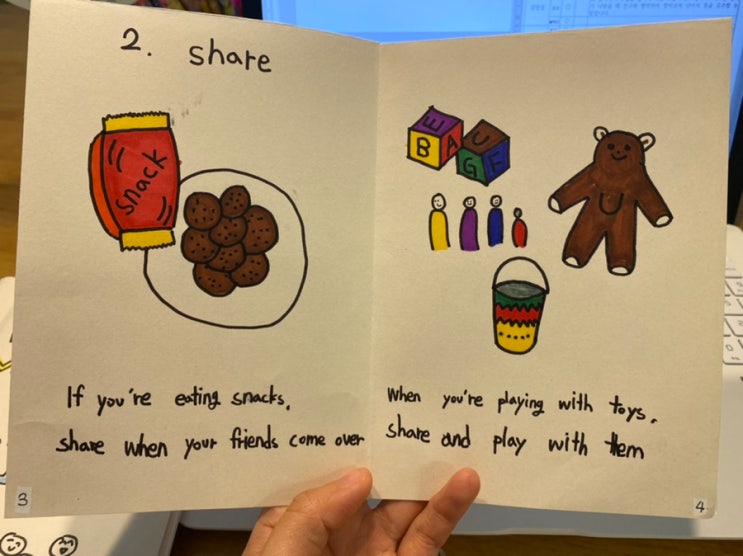 2. share
snack
E
B A
U
G F
If you're eating snacks,
share when your friends come over
3
When you're playing with toys,
share and play with them
4